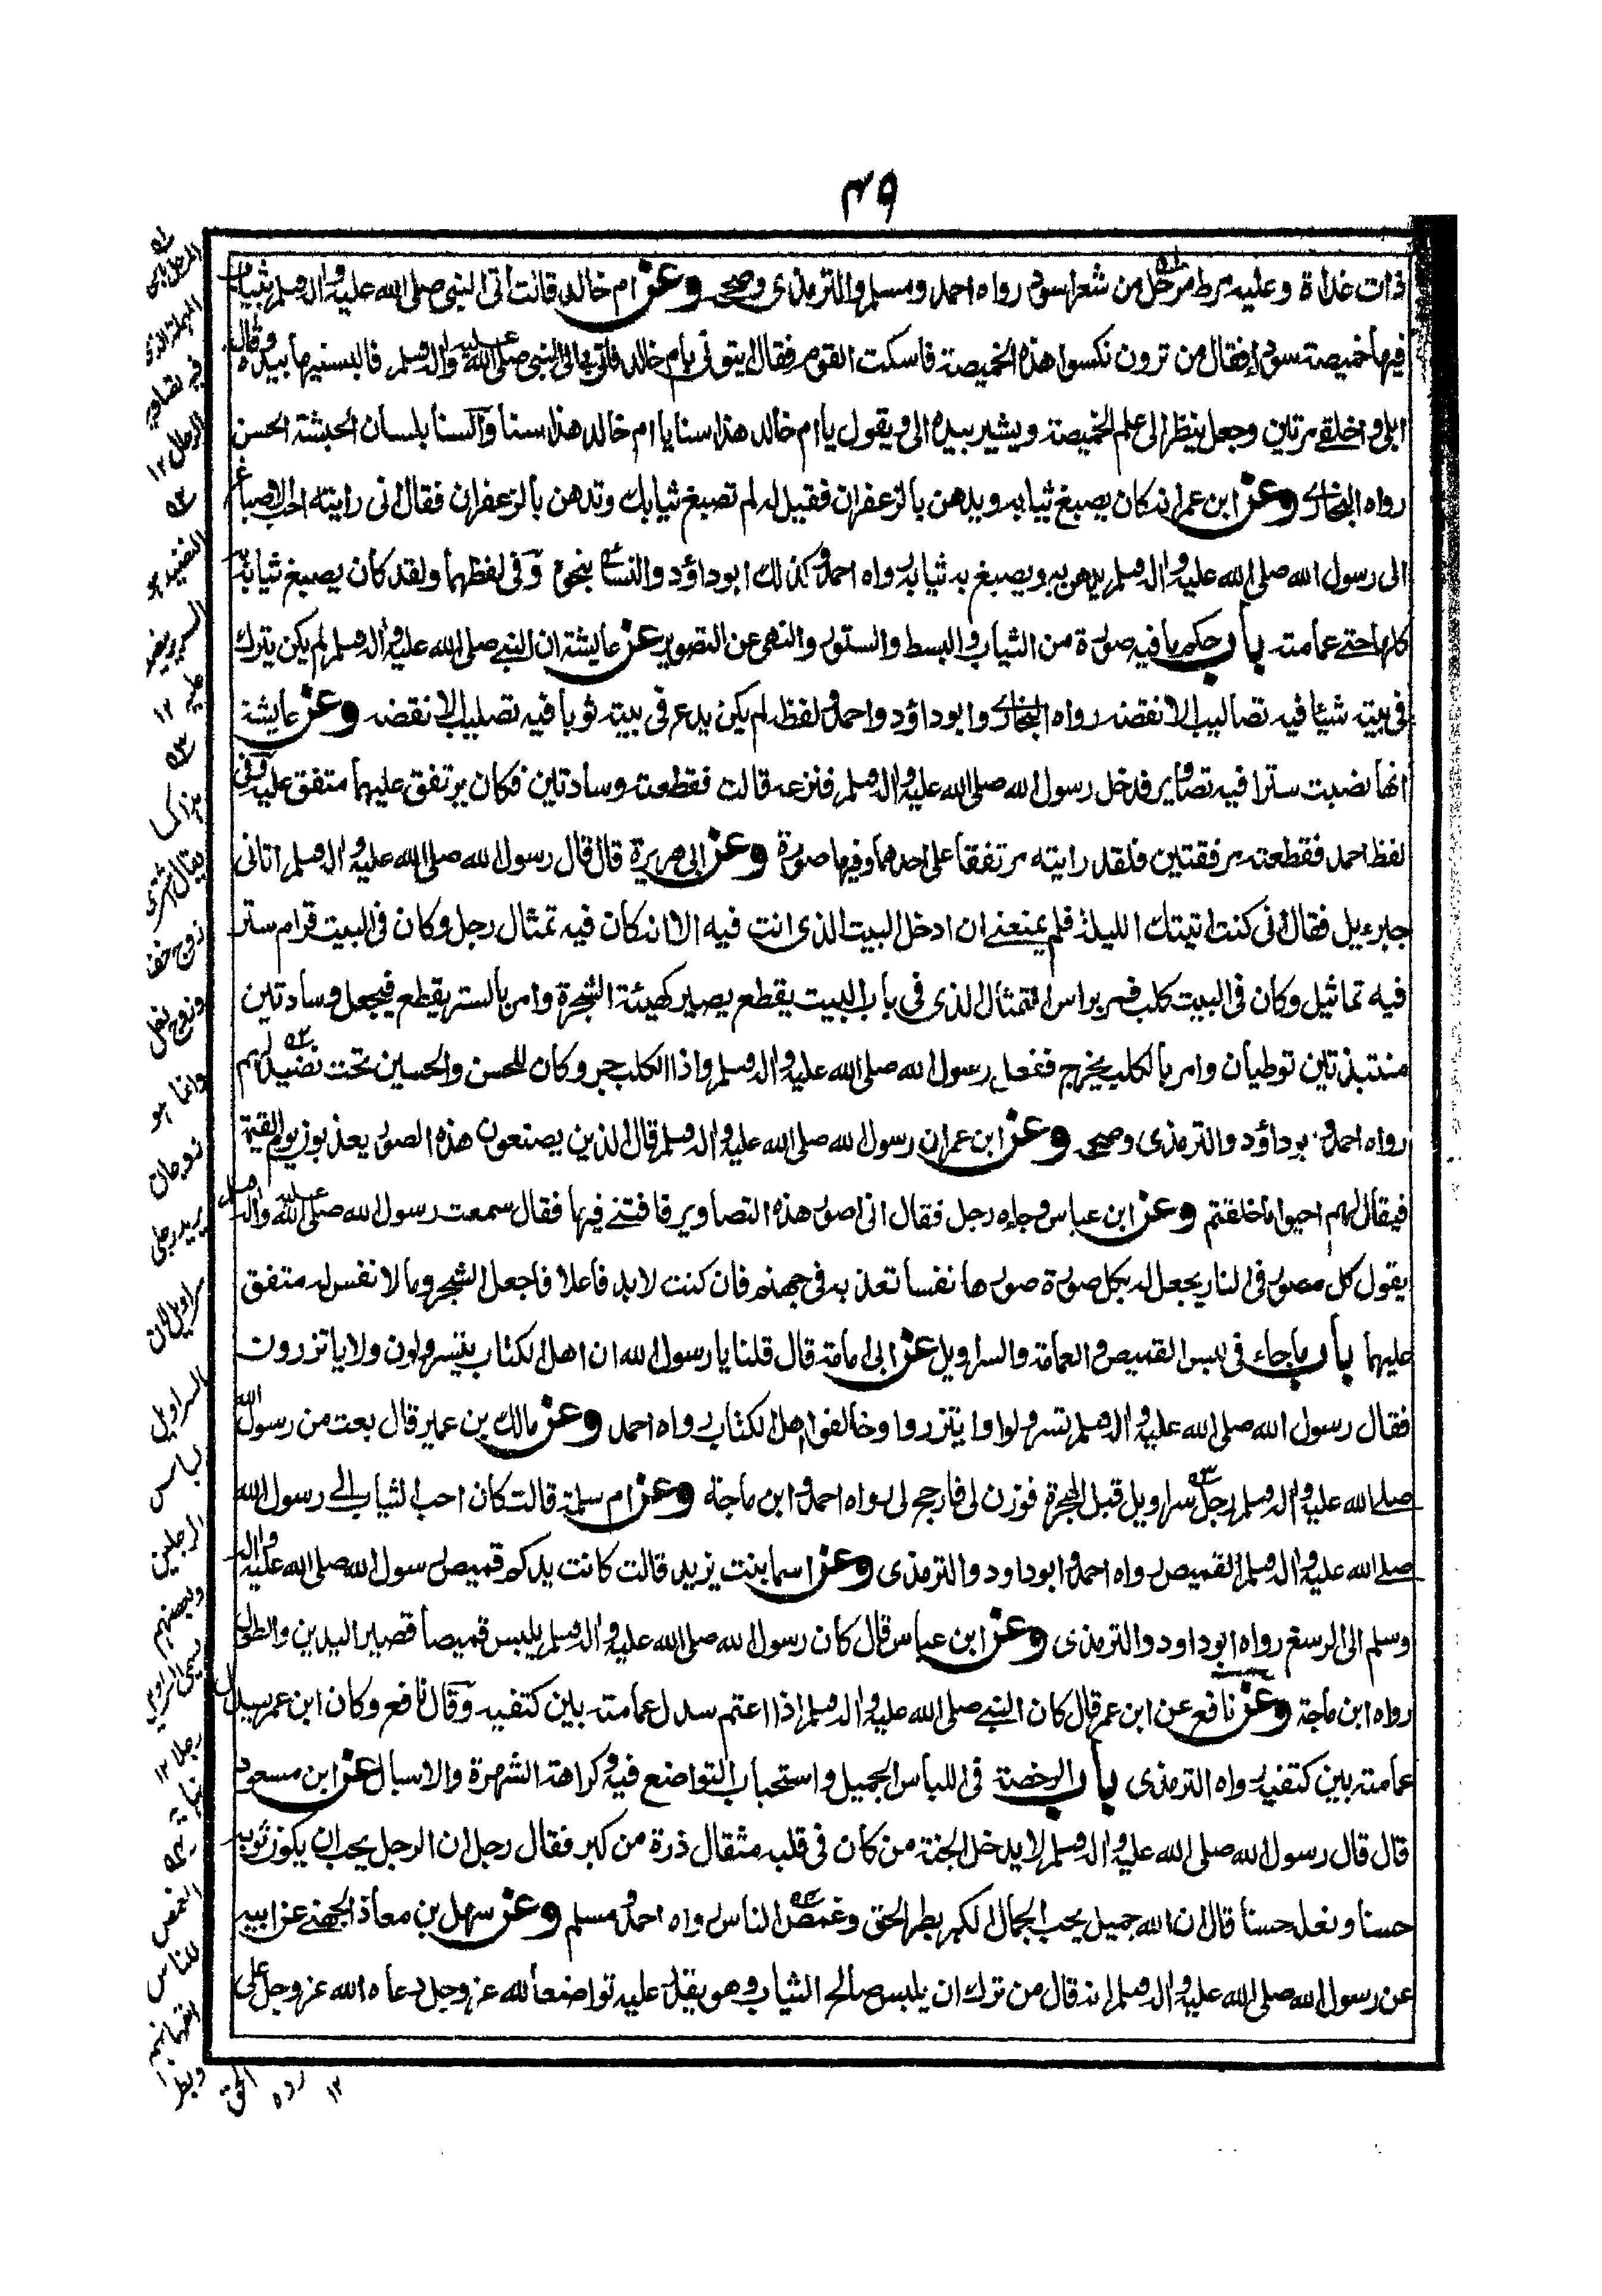 ٤٩
ذات غداة وعليه مرط مرحل من شعر اسود رواه احمد ومسلم والترمذى وصححه وعن ام خالد قالت اتى النبى صلى الله عليه واله وسلم بثياب
فيها خميصة سوداء فقال من ترون نكسوا هذه الخميصة فاسكت القوم فقال ايتونى بام خالد فاتى بى الى النبى صلى الله عليه واله وسلم فالبسنيها بيده وقال
ابلى واخلقى مرتين وجعل ينظر الى علم الخميصة ويشير بيده الى ويقول يا ام خالد هذا سنا يا ام خالد هذا سنا والسنا بلسان الحبشة الحسن
رواه البخارى وعن ابن عمر انه كان يصبغ ثيابه ويدهن بالزعفران فقيل له لم تصبغ ثيابك وتدهن بالزعفران فقال انى رايته احب الاصباغ
الى رسول الله صلى الله عليه واله وسلم يدهن به ويصبغ به ثيابه رواه احمد وكذلك ابوداؤد والنسائى بنحوه وفى لفظهما ولقد كان يصبغ ثيابه
كلها حتى عمامته باب حكم ما فيه صورة من الثياب والبسط والستور والنهى عن التصوير عن عايشة ان النبى صلى الله عليه واله وسلم لم يكن يترك
فى بيته شيئا فيه تصاليب الا نقضه رواه البخارى وابوداؤد واحمد ولفظه لم يكن يدع فى بيته ثوبا فيه تصليب الا نقضه وعن عايشة
انها نصبت سترا فيه تصاوير فدخل رسول الله صلى الله عليه واله وسلم فنزعه قالت فقطعته وسادتين فكان يرتفق عليهما متفق عليه وفى
لفظ احمد فقطعته مرفقتين فلقد رايته مرتفقا على احدهما وفيها صورة وعن ابى هريرة قال قال رسول الله صلى الله عليه واله وسلم اتانى
جبرءيل فقال انى كنت اتيتك الليلة فلم يمنعنى ان ادخل البيت الذى انت فيه الا انه كان فيه تمثال رجل وكان فى البيت قرام ستر
فيه تماثيل وكان فى البيت كلب فمر براس التمثال الذى فى باب البيت يقطع يصير كهيئة الشجرة وامر بالستر يقطع فيجعل وسادتين
منتبذتين توطيان وامر بالكلب يخرج ففعل رسول الله صلى الله عليه واله وسلم واذا الكلب جرو وكان للحسن والحسين تحت نضيد لهم
رواه احمد وابوداؤد والترمذى وصححه وعن ابن عمر ان رسول الله صلى الله عليه واله وسلم قال الذين يصنعون هذه الصور يعذبون يوم القيمة
فيقال لهم احيوا ما خلقتم وعن ابن عباس وجاءه رجل فقال انى اصور هذه التصاوير فافتنى فيها فقال سمعت رسول الله صلى الله عليه واله وسلم
يقول كل مصور فى النار يجعل له بكل صورة صورها نفسا تعذبه فى جهنم فان كنت لا بد فاعلا فاجعل الشجر وما لا نفس له متفق
عليهما باب ما جاء فى لبس القميص والعمامة والسراويل عن ابى امامة قال قلنا يا رسول الله ان اهل الكتاب يتسرولون ولا ياتزرون
فقال رسول الله صلى الله عليه واله وسلم تسرولوا وايتزروا وخالفوا اهل الكتاب رواه احمد وعن مالك بن عمير قال بعت من رسول الله
صلى الله عليه واله وسلم رجل سراويل قبل الهجرة فوزن لى فارجح لى رواه احمد وابن ماجة وعن ام سلمة قالت كان احب الثياب الى رسول الله
صلى الله عليه واله وسلم القميص رواه احمد وابوداود والترمذى وعن اسما بنت يزيد قالت كانت يدكم قميص رسول الله صلى الله عليه واله
وسلم الى الرسغ رواه ابوداود والترمذى وعن ابن عباس قال كان رسول الله صلى الله عليه واله وسلم يلبس قميصا قصير اليدين والطول
رواه ابن ماجة وعن نافع عن ابن عمر قال كان النبى صلى الله عليه واله وسلم اذا اعتم سدل عمامته بين كتفيه وقال نافع وكان ابن عمر يسدل
عمامته بين كتفيه رواه الترمذى باب الرخصة فى اللباس الجميل واستحباب التواضع فيه وكراهة الشهرة والاسبال عن ابن مسعود
قال قال رسول الله صلى الله عليه واله وسلم لا يدخل الجنة من كان فى قلبه مثقال ذرة من كبر فقال رجل ان الرجل يحب ان يكون ثوبه
حسنا ونعله حسنا قال ان الله جميل يحب الجمال الكبر بطر الحق وغمص الناس رواه احمد ومسلم وعن سهل بن معاذ الجهنى عن ابيه
عن رسول الله صلى الله عليه واله وسلم انه قال من ترك ان يلبس صالح الثياب وهو يقدر عليه تواضعا لله عزوجل دعاه الله عزوجل على
المهملة الذى
فيه تصاوير
الرحال ١٢
النضيد هو
السرير ينضد
عليه ١٢
هذا كما
يقال اشترى
زوج خف
وزوج نعل
وانما هو
زوجان
يريد رجلى
سراويل لان
السراويل
لباس
الرجلين
وبعضهم
يسمى السراويل
رجلا ١٢
نهاية
الغمص
للناس
وبطر
الحق
رده
١٢